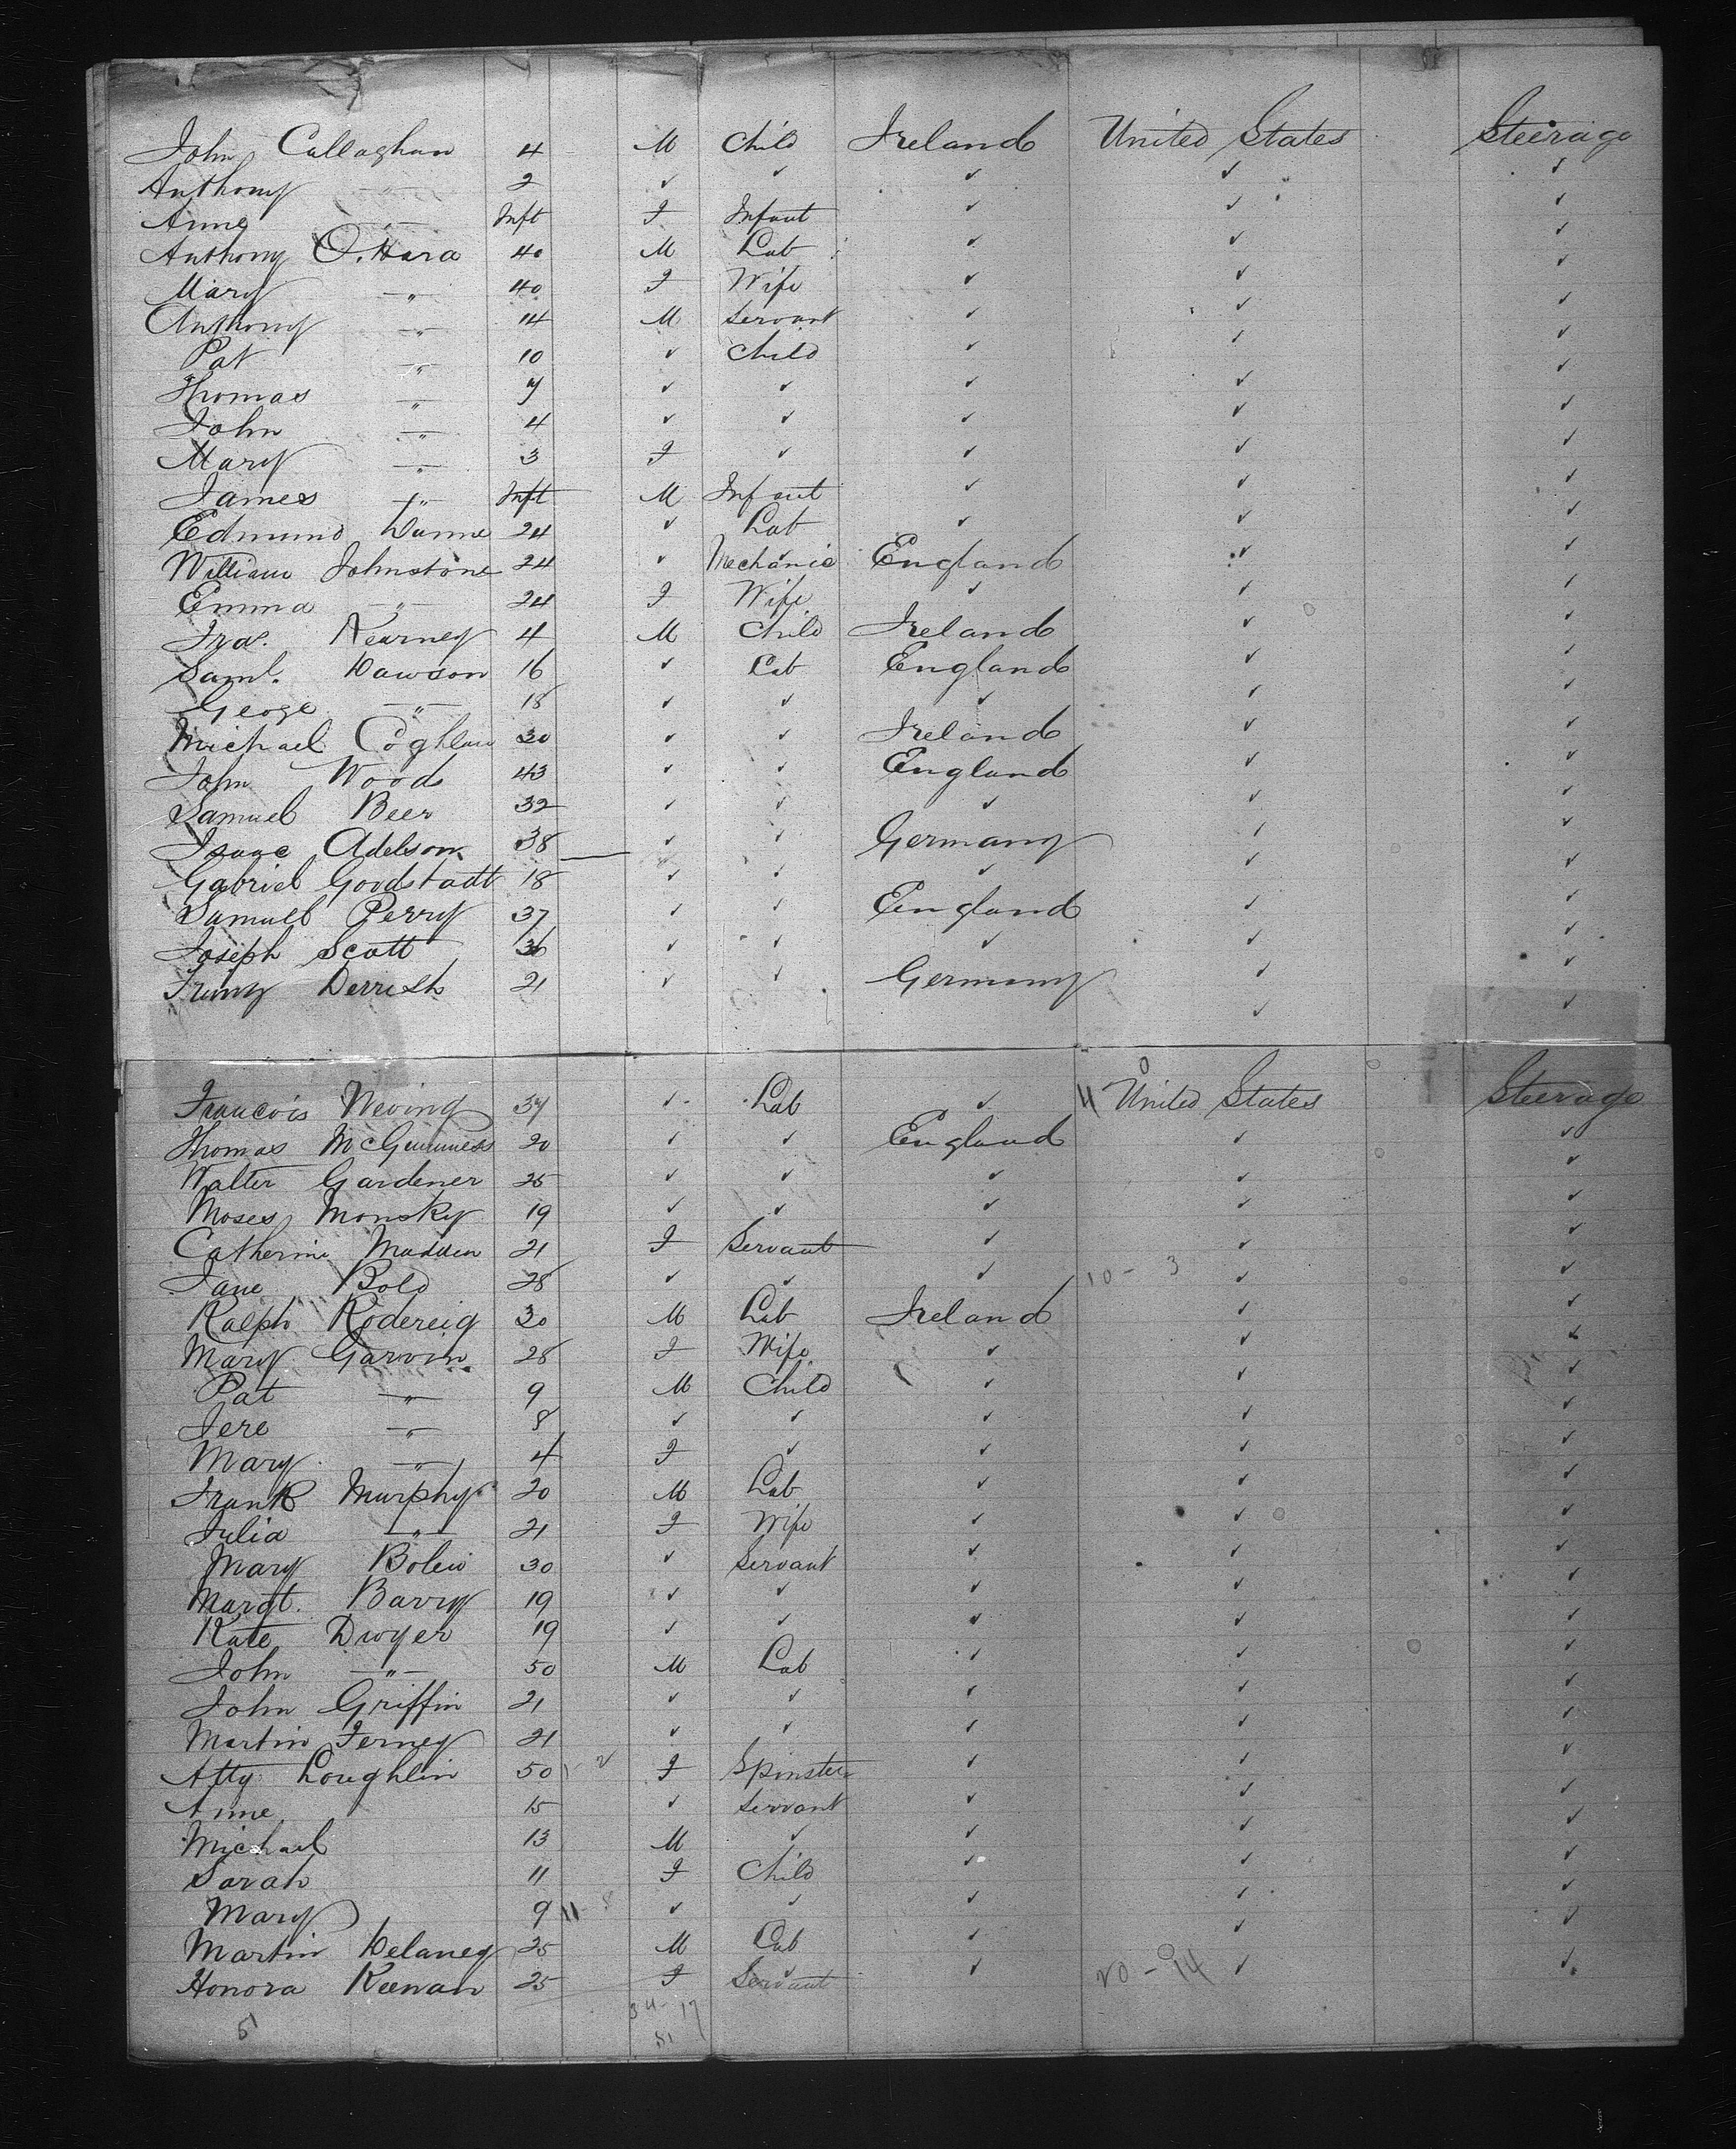 John Callaghan 4 M Child Ireland United States Steerage
Anthony " 2 ✓ ✓ ✓ ✓ ✓
Anne " Inft F Infant ✓ ✓ ✓
Anthony O.Hara 40 M Lab ✓ ✓ ✓
Mary " 40 F Wife ✓ ✓ ✓
Anthony " 14 M Servant ✓ ✓ ✓
Pat " 10 ✓ Child ✓ ✓ ✓
Thomas " 7 ✓ ✓ ✓ ✓ ✓
John " 4 ✓ ✓ ✓ ✓ ✓
Mary " 3 F ✓ ✓ ✓ ✓
James " Inft M Infant ✓ ✓ ✓
Edmund Dunne 24 ✓ Lab ✓ ✓ ✓
William Johnstone 24 ✓ Mechanic England ✓ ✓
Emma " 24 F Wife ✓ ✓ ✓
Kearney 4 M Child Ireland ✓ ✓
Saml. Dawson 16 ✓ Lab England ✓ ✓
Geoge " 18 ✓ ✓ ✓ ✓ ✓
Michael Coghlan 30 ✓ ✓ Ireland ✓ ✓
John Woods 43 ✓ ✓ England ✓ ✓
Samuel Beer 32 ✓ ✓ ✓ ✓ ✓
Isaac Adelson 38 ✓ ✓ Germany ✓ ✓
Gabriel Goodstadt 18 ✓ ✓ ✓ ✓ ✓
Samuel Perry 37 ✓ ✓ England ✓ ✓
Joseph Scott 36 ✓ ✓ ✓ ✓ ✓
21 ✓ ✓ Germany ✓ ✓
Francois 37 ✓ Lab ✓ United States Steerage
Thomas McGuinness 20 ✓ ✓ England ✓ ✓
Walter Gardener 25 ✓ ✓ ✓ ✓ ✓
Moses Monsky 19 ✓ ✓ ✓ ✓ ✓
Catherine Madden 21 F Servant ✓ ✓ ✓
Jane Bold 28 ✓ ✓ ✓ 10 - 3 ✓ ✓
Ralph Rodereig 30 M Lab Ireland ✓ ✓
Mary Garvin 28 F Wife ✓ ✓ ✓
Pat " 9 M Child ✓ ✓ ✓
Jere " 8 ✓ ✓ ✓ ✓ ✓
Mary " 4 F ✓ ✓ ✓ ✓
Frank Murphy 20 M Lab ✓ ✓ ✓
Julia " 21 F Wife ✓ ✓ ✓
Mary 30 ✓ Servant ✓ ✓ ✓
Margt. Barry 19 ✓ ✓ ✓ ✓ ✓
Kate Dwyer 19 ✓ ✓ ✓ ✓ ✓
John " 50 M Lab ✓ ✓ ✓
John Griffin 21 ✓ ✓ ✓ ✓ ✓
Martin Ferney 21 ✓ ✓ ✓ ✓ ✓
Atty Loughlin 50 F Spinster ✓ ✓ ✓
Anne 15 ✓ Servant ✓ ✓ ✓
Michael 13 M ✓ ✓ ✓ ✓
Sarah 11 F Child ✓ ✓ ✓
Mary 9 11 8 ✓ ✓ ✓ ✓ ✓
Martin Delaney 25 M Lab ✓ ✓ ✓
Honora Keenan 25 F Servant ✓ 20 - 14 ✓ ✓
51 34 - 17
51